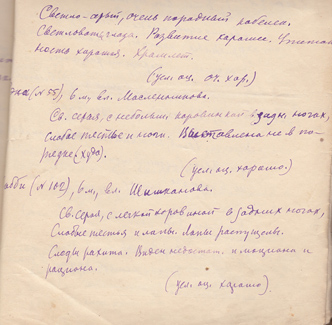 Светло-серый, очень породный кобель.
Светловат, глаза. Развитие хорошее. Упитан
ность хорошая. Хромает.
(усл. оц. оч. хор.)
(№ 55), 6 м, вл. Масленникова.
Св. серая, с небольш. коровиной в задн. ногах,
слабое пестье и ноги. Выставлена не в по-
рядке (худа).
(усл. оц. хорошо.)
(№ 102), 6 м, вл. Шишканова.
Св. серая, с легкой коровиной в задних ногах,
Слабые пестья и лапы. Лапы распущены.
Следы рахита. Виден недостат. моциона и
рациона.
(усл. оц. хорошо)